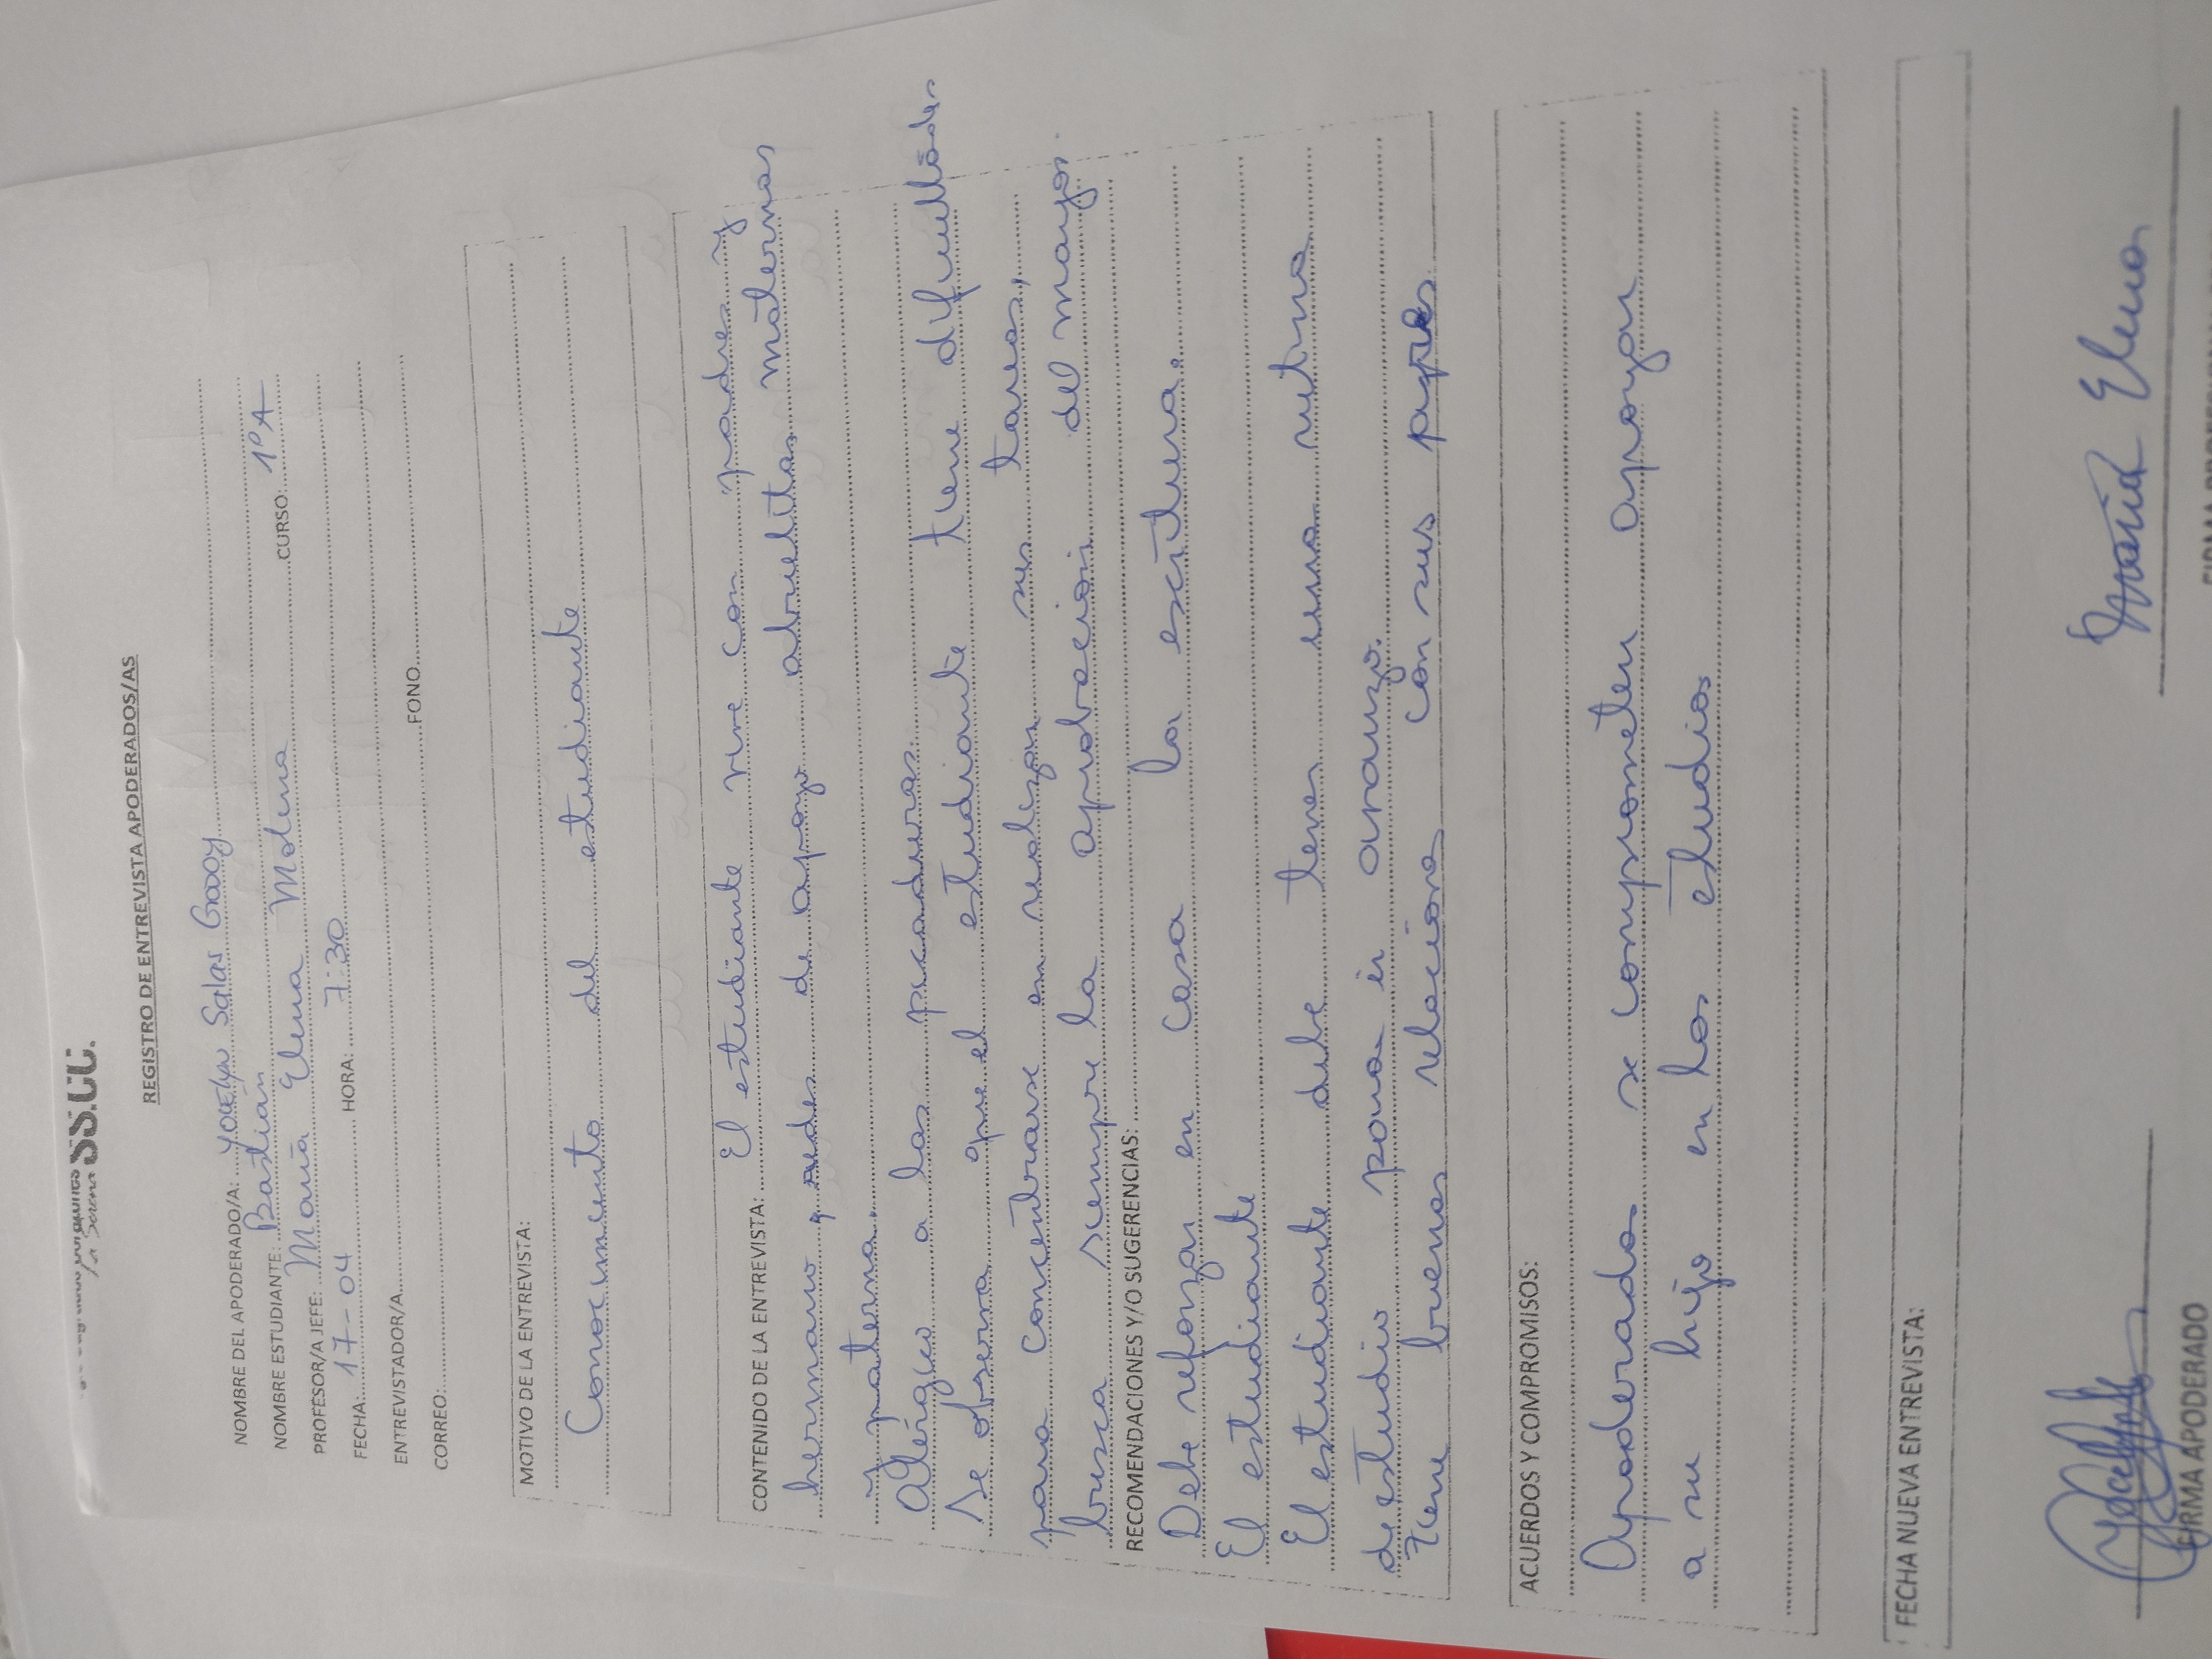 SS.CC.
La Serena
REGISTRO DE ENTREVISTA APODERADOS/AS
NOMBRE DEL APODERADO/A: Yocelyn Salas Godoy
NOMBRE ESTUDIANTE: Bastián CURSO: 1ºA
PROFESOR/A JEFE: María Elena Molina
FECHA: 17-04 HORA: 7:30
ENTREVISTADOR/A
CORREO: FONO
MOTIVO DE LA ENTREVISTA:
Conocimiento del estudiante
CONTENIDO DE LA ENTREVISTA: El estudiante vive con padres y
hermano y redes de apoyo abuelitas maternas
y paterna.
Alérgico a las picaduras
Se observa que el estudiante tiene dificultades
para concentrarse en realizar sus tareas,
busca siempre la aprobación del mayor.
RECOMENDACIONES Y/O SUGERENCIAS:
Debe reforzar en casa la escritura.
El estudiante
El estudiante debe tener una rutina
de estudio para ir avanzo.
Tiene buenas relaciones con sus pares
ACUERDOS Y COMPROMISOS:
Apoderados se comprometen apoyar
a su hijo en los estudios
FECHA NUEVA ENTREVISTA:
María Elena
FIRMA APODERADO